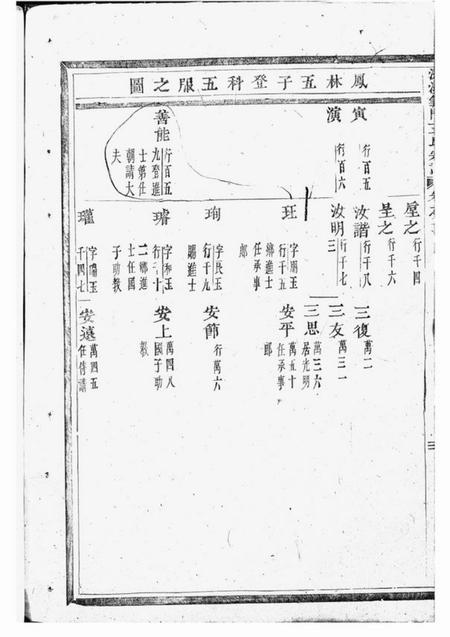 鳳林五子登科五服之圖
寅
行百五
演
行百六
善能
行百五
九登進
士第仕
朝請大
夫
垕之
行千四
呈之
行千六
汝諧
行千八
汝明
行千七
三
玨
行千五
鄉進士
任承事
郎
珣
字良玉
行千九
賜進士
璿
字和玉
二鄉進
士任國
子助教
瓘
千四七
三復
萬二
三友
萬三一
三思
萬三六
居光明
安平
萬五十
任承事
郎
安節
行萬六
安上
萬四八
國子助
教
安遠
萬四五